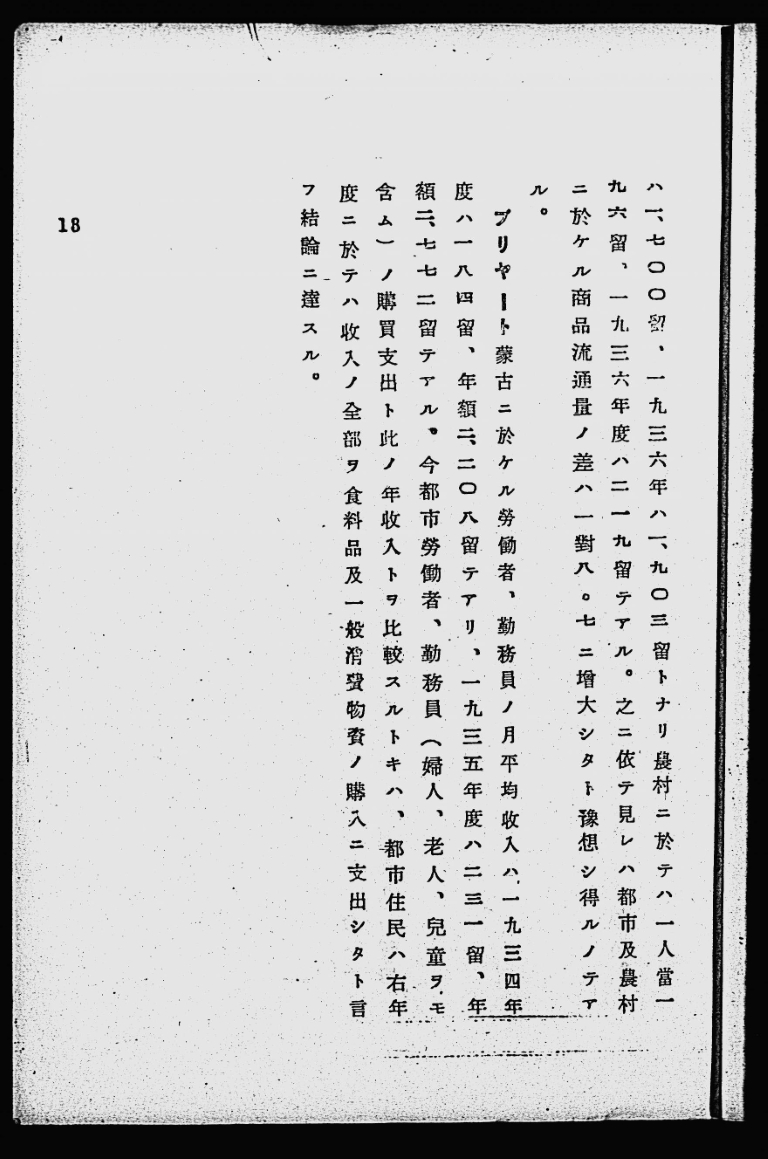 ハ一、七〇〇留、一九三六年ハ一、九〇三留トナリ農村ニ於テハ一人當一
九六留、一九三六年度ハ二一九留テアル。之ニ依テ見レハ都市及農村
ニ於ケル商品流通量ノ差ハ一對八。七ニ增大シタト豫想シ得ルノテア
ル。
ブリヤート蒙古ニ於ケル勞働者、勤務員ノ月平均收入ハ、一九三四年
度ハ一八四留、年額二、二〇八留テアリ、一九三五年度ハ二三一留、年
額二、七七二留テアル。今都市勞働者、勤務員（婦人、老人、兒童ヲモ
含ム）ノ購買支出ト此ノ年收入トヲ比較スルトキハ、都市住民ハ右年
度ニ於テハ收入ノ全部ヲ食料品及一般消費物資ノ購入ニ支出シタト言
フ結論ニ達スル。
18